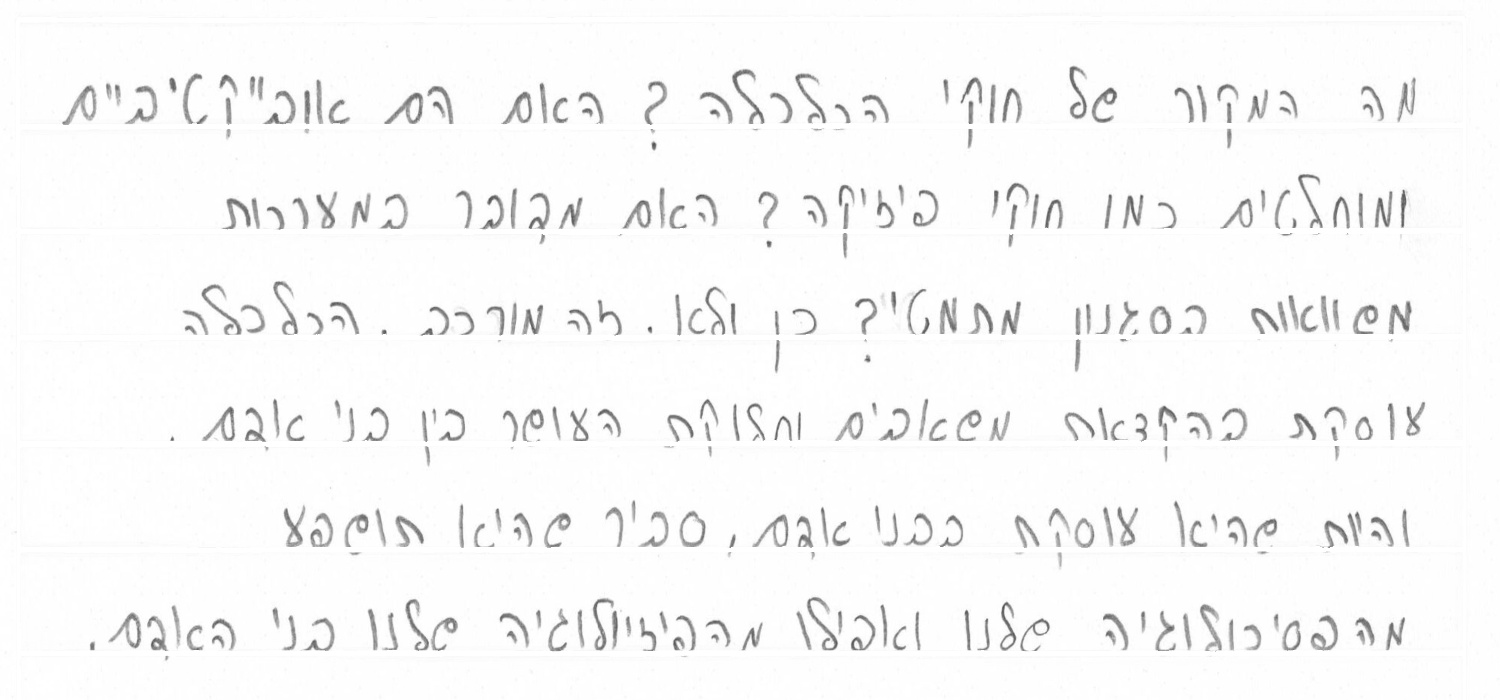 מה המקור של חוקי הכלכלה? האם הם אוביייקטיביים
ומוחלטים כמו חוקי פיזיקה? האם מדובר במערכות
משוואות בסגנון מתמטי? כן ולא. זה מורכב. הכלכלה
עוסקת בהקצאת משאבים וחלוקת העושר בין בני אדם.
והיות שהיא עוסקת בבני אדם, סביר שהיא תושפע
מהפסיכולוגיה שלנו ואפילו מהפיזיולוגיה שלנו בני האדם.